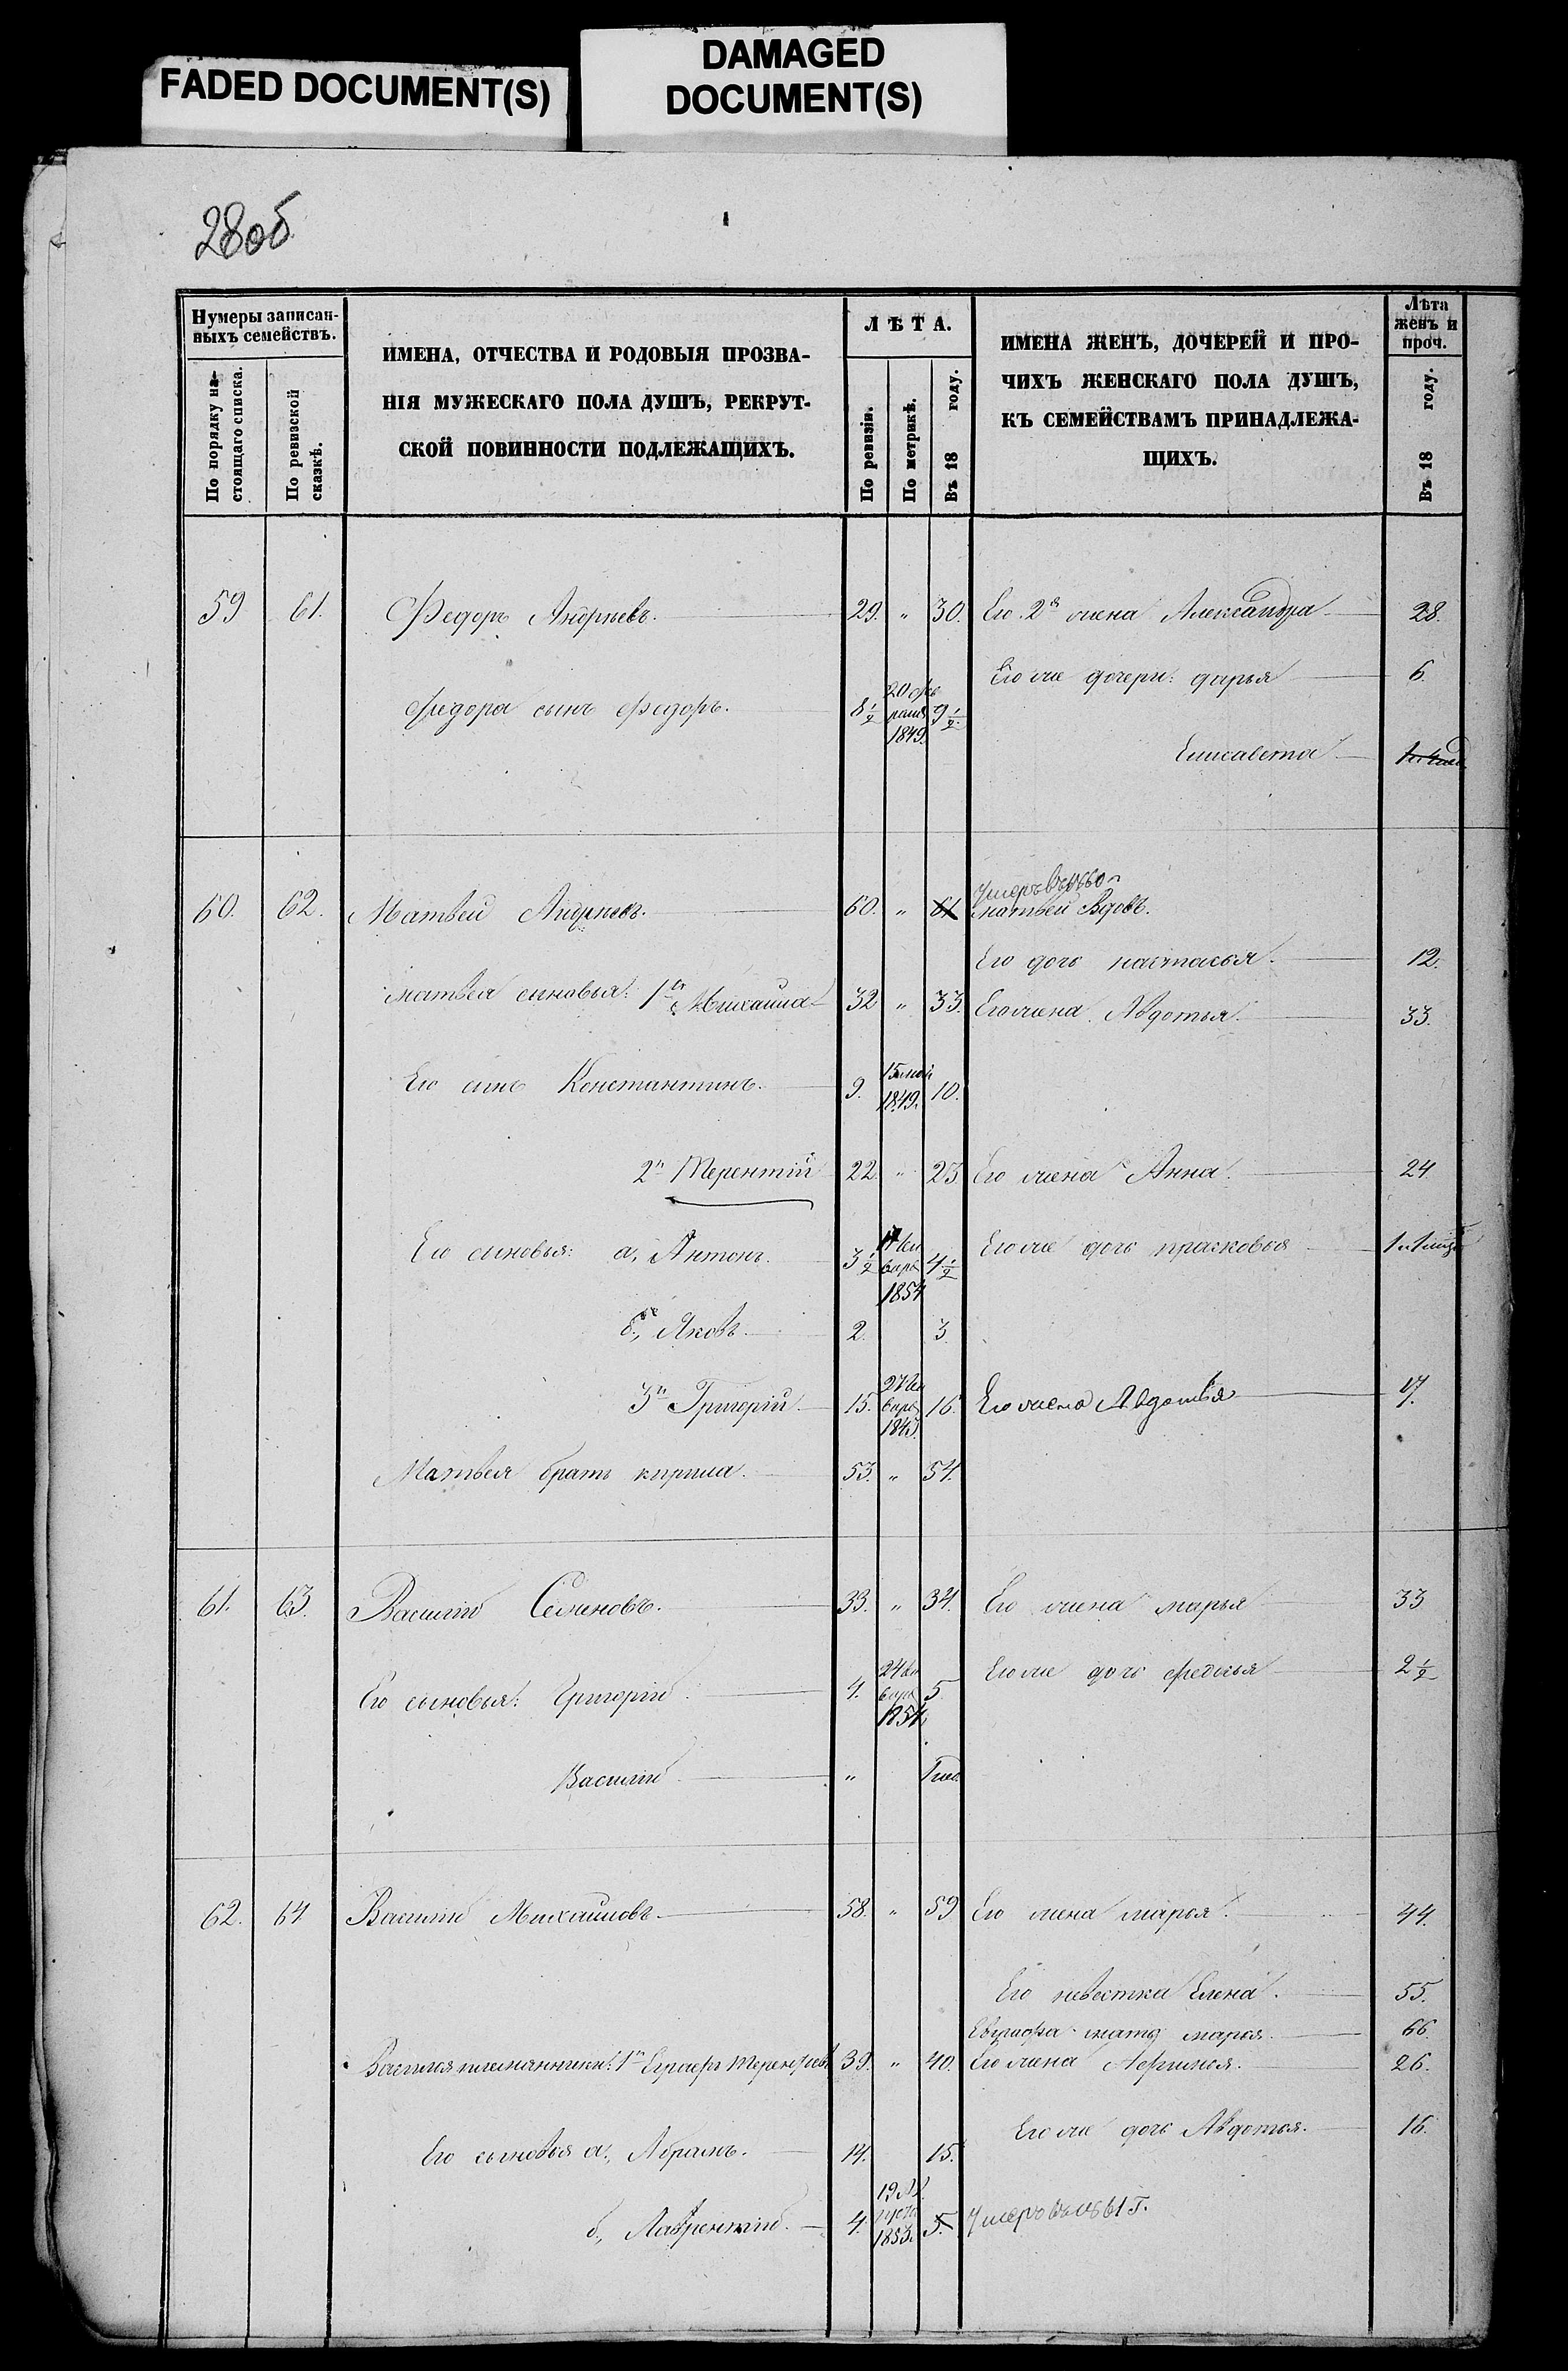 FADED DOCUMENT(S)
DAMAGED
DOCUMENT(S)
28об
Нумеры записан-
ныхъ семействъ.
По порядку на-
стоящаго списка.
По ревизской
сказкѣ.
ИМЕНА, ОТЧЕСТВА И РОДОВЫЯ ПРОЗВА-
НІЯ МУЖЕСКАГО ПОЛА ДУШЪ, РЕКРУТ-
СКОЙ ПОВИННОСТИ ПОДЛЕЖАЩИХЪ.
ЛѢТА.
По ревизіи.
По метрикѣ.
Въ 18 году.
ИМЕНА ЖЕНЪ, ДОЧЕРЕЙ И ПРО-
ЧИХЪ ЖЕНСКАГО ПОЛА ДУШЪ,
КЪ СЕМЕЙСТВАМЪ ПРИНАДЛЕЖА-
ЩИХЪ.
Лѣта
женъ и
проч.
Въ 18 году.
59 61. Федоръ Андреевъ. 29. " 30. Его 2я жена Александра 28.
Его же дочери: дарья 6.
Федора сынъ Федоръ. 8½ 20 фев
раля 1849. 9½
Елисавета
60. 62. Матвей Андреевъ. 60. " 61 Умеръ въ 1860 г
матвей Вдовъ.
Его дочь настасья. 12.
матвея сыновья: 1й Михаила 32 " 33. Его жена Авдотья. 33.
Его сынъ Константинъ. 9. 15 мая
1849. 10.
2й Терентій 22 " 23 Его жена Анна. 24
Его сыновья: а, Антонъ. 3½ 17 Ян
варя
1854 4½ Его же дочь прасковья
б, Яковъ. 2. 3
3й Григорій. 15. 27 Ян
варя
1843. 16. Его жена Авдотья 17.
Матвея братъ кирила. 53. " 54.
61. 63. Василій Семеновъ. 33. " 34. Его жена марья 33
Его же дочь федосья 2½
Его сыновья: Григорій. 4. 24 Ян
варя
1854 5.
Василій "
62. 64 Василій Михайловъ. 58. " 59 Его жена марья. 44.
Его невестка Елена. 55.
Евграфа мать марья. 66.
Василья племянники: 1й Евграфъ Терентьевъ 39. " 40. Его жена 26.
Его же дочь Авдотья. 16.
Его сыновья а, Абрамъ. 14. 15.
б, Лаврентій. 4. 19 Ав
густа
1853. 5. Умеръ въ 1861 г.